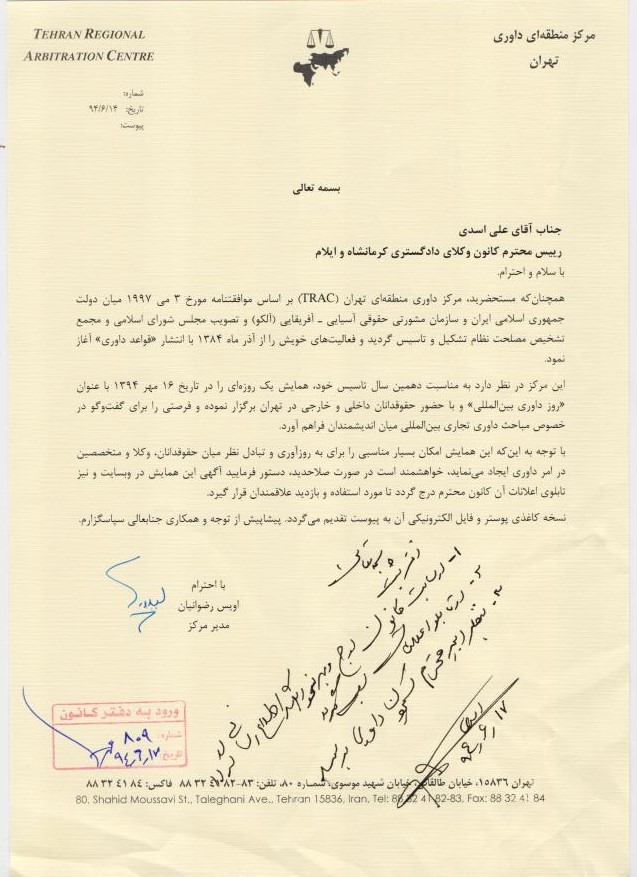 TEHRAN REGIONAL
ARBITRATION CENTRE
مرکز منطقه‌ای داوری
تهران
شماره:
تاریخ: ۹۴/۶/۱۴
پیوست:
بسمه تعالی
جناب آقای علی اسدی
رییس محترم کانون وکلای دادگستری کرمانشاه و ایلام
با سلام و احترام.
همچنان‌که مستحضرید، مرکز داوری منطقه‌ای تهران (TRAC) بر اساس موافقتنامه مورخ ۳ می ۱۹۹۷ میان دولت
جمهوری اسلامی ایران و سازمان مشورتی حقوقی آسیایی ـ آفریقایی (آلکو) و تصویب مجلس شورای اسلامی و مجمع
تشخیص مصلحت نظام تشکیل و تاسیس گردید و فعالیت‌های خویش را از آذر ماه ۱۳۸۴ با انتشار «قواعد داوری» آغاز
نمود.
این مرکز در نظر دارد به مناسبت دهمین سال تاسیس خود، همایش یک روزه‌ای را در تاریخ ۱۶ مهر ۱۳۹۴ با عنوان
«روز داوری بین‌المللی» و با حضور حقوقدانان داخلی و خارجی در تهران برگزار نموده و فرصتی را برای گفت‌وگو در
خصوص مباحث داوری تجاری بین‌المللی میان اندیشمندان فراهم آورد.
با توجه به این‌که این همایش امکان بسیار مناسبی را برای به روزآوری و تبادل نظر میان حقوقدانان، وکلا و متخصصین
در امر داوری ایجاد می‌نماید، خواهشمند است در صورت صلاحدید، دستور فرمایید آگهی این همایش در وبسایت و نیز
تابلوی اعلانات آن کانون محترم درج گردد تا مورد استفاده و بازدید علاقمندان قرار گیرد.
نسخه کاغذی پوستر و فایل الکترونیکی آن به پیوست تقدیم می‌گردد. پیشاپیش از توجه و همکاری جنابعالی سپاسگزارم.
با احترام
اویس رضوانیان
مدیر مرکز
بسمه تعالی
۱- در سایت کانون درج
۲- در تابلو اعلانات
۳-
۹۴/۶/۱۷
ورود به دفتر کانون
شماره: ۸۰۹
تاریخ: ۹۴/۶/۱۷
تهران ۱۵۸۳۶، خیابان طالقانی، خیابان شهید موسوی، شماره ۸۰، تلفن: ۸۳-۸۸ ۳۲ ۴۱ ۸۲ فاکس: ۸۸ ۳۲ ۴۱ ۸۴
80, Shahid Moussavi St., Taleghani Ave., Tehran 15836, Iran, Tel: 88 32 41 82-83, Fax: 88 32 41 84